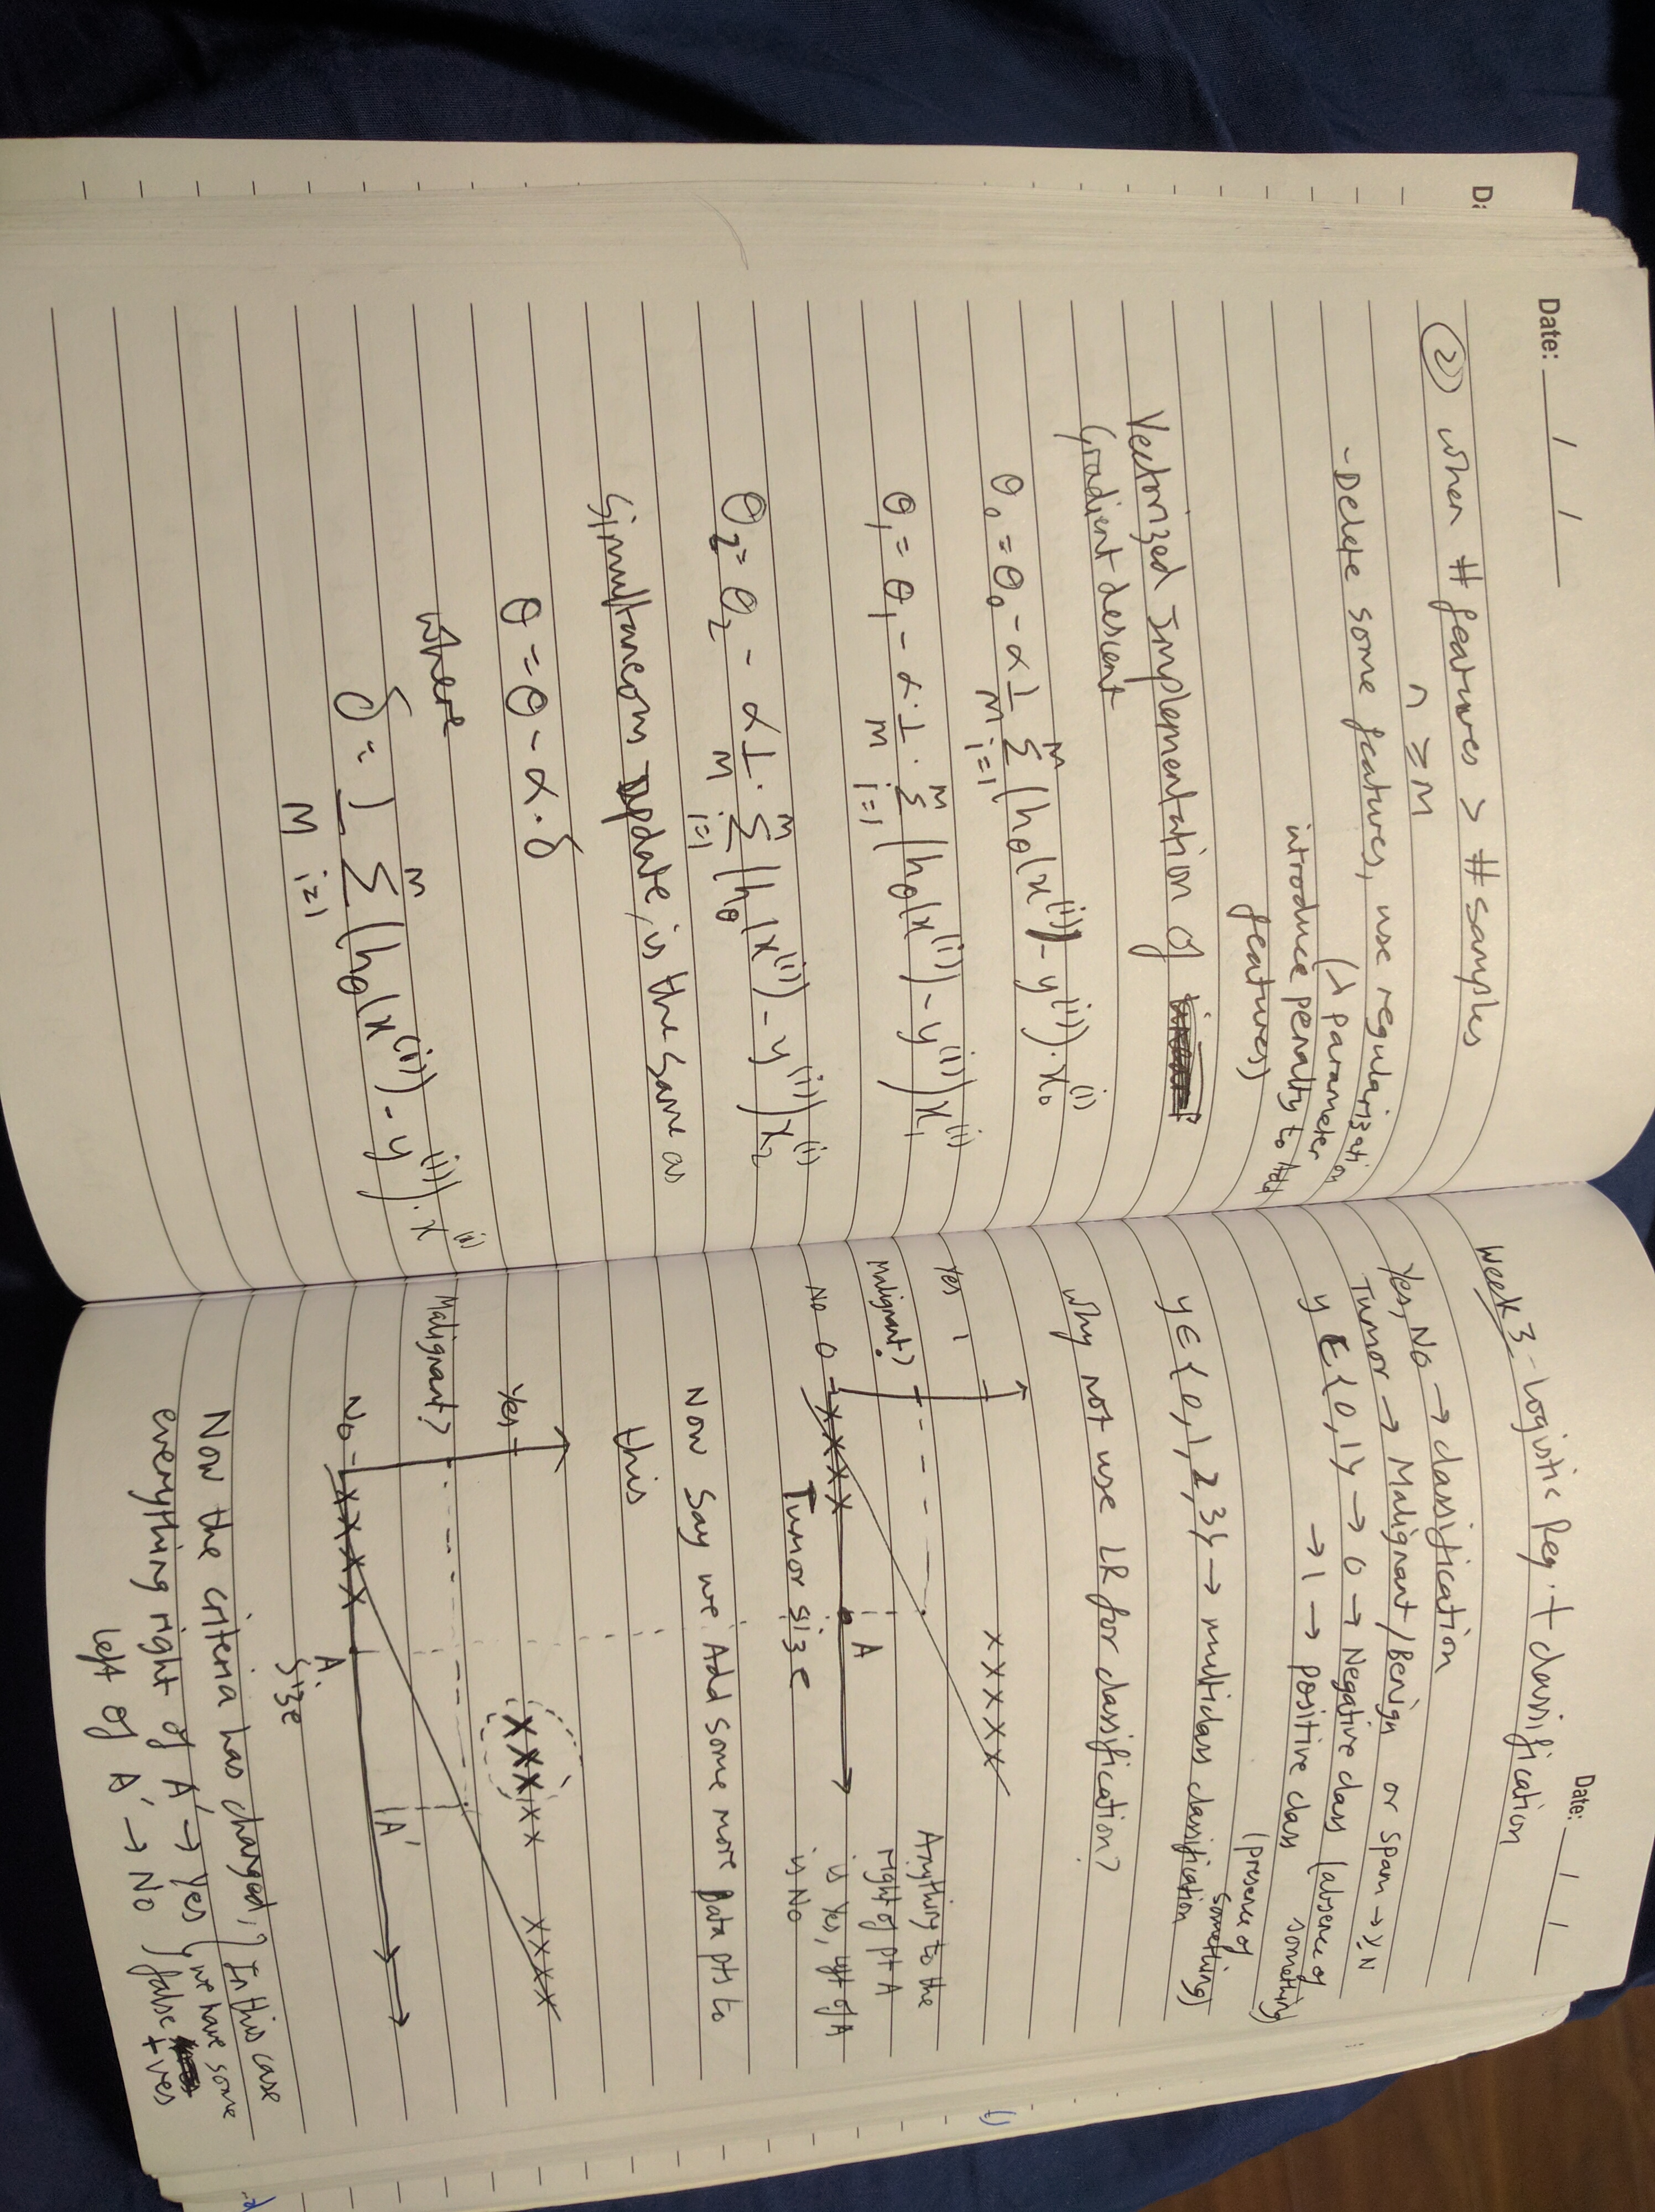 Date: / /
② when # features > # samples
n ≥ m
- Delete some features, use regularization
(λ parameter
introduce penalty to Add
features)
Vectorized Implementation of
Gradient descent
θ₀ = θ₀ - α 1/m Σ_{i=1}^{m} (h_θ(x^(i)) - y^(i)) · x₀^(i)
θ₁ = θ₁ - α · 1/m · Σ_{i=1}^{m} (h_θ(x^(i)) - y^(i)) x₁^(i)
θ₂ = θ₂ - α 1/m · Σ_{i=1}^{m} (h_θ(x^(i)) - y^(i)) x₂^(i)
Simultaneous Update, is the same as
θ = θ - α · δ
where
δ = 1/m Σ_{i=1}^{m} (h_θ(x^(i)) - y^(i)) · x^(i)
Date: / /
Week 3 - Logistic Reg. + classification
Yes, No → classification
Tumor → Malignant / Benign or spam → Y, N
y ∈ {0, 1} → 0 → Negative class (absence of
something)
→ 1 → positive class
(presence of
something)
y ∈ {0, 1, 2, 3} → multiclass classification
Why not use LR for classification?
x x x x x
Yes 1
Malignant?
No 0
x x x x
A
Tumor size
Anything to the
right of pt A
is Yes, left of A
is No
Now say we Add some more Data pts to
this
Yes
x x x x x x x x x
Malignant?
A'
No
x x x x
A.
Size
Now the criteria has changed,
everything right of A' → Yes
left of A' → No
In this case
we have some
false
+ves